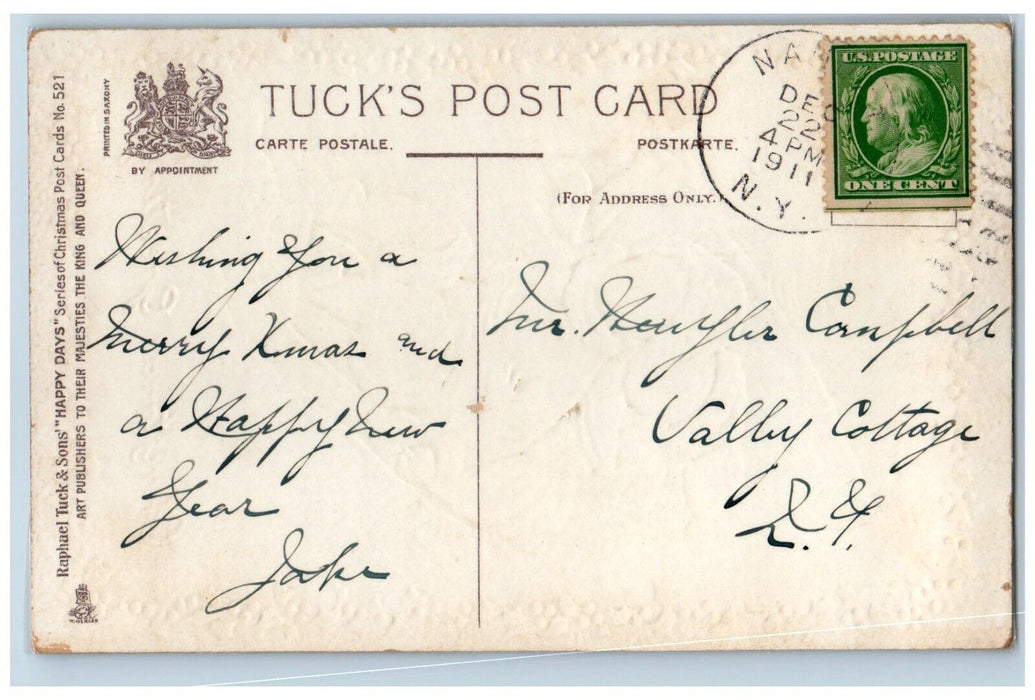 TUCK'S POST CARD
CARTE POSTALE.
POSTKARTE.
(FOR ADDRESS ONLY.)
PRINTED IN SAXONY
BY APPOINTMENT
Raphael Tuck & Sons' "HAPPY DAYS" Series of Christmas Post Cards No. 521
ART PUBLISHERS TO THEIR MAJESTIES THE KING AND QUEEN.
U.S. POSTAGE
ONE CENT
DEC
22
4 PM
1911
N.Y.
Wishing You a
Merry Xmas and
a Happy New
Year
Jake
Mr. Campbell
Valley Cottage
N.Y.